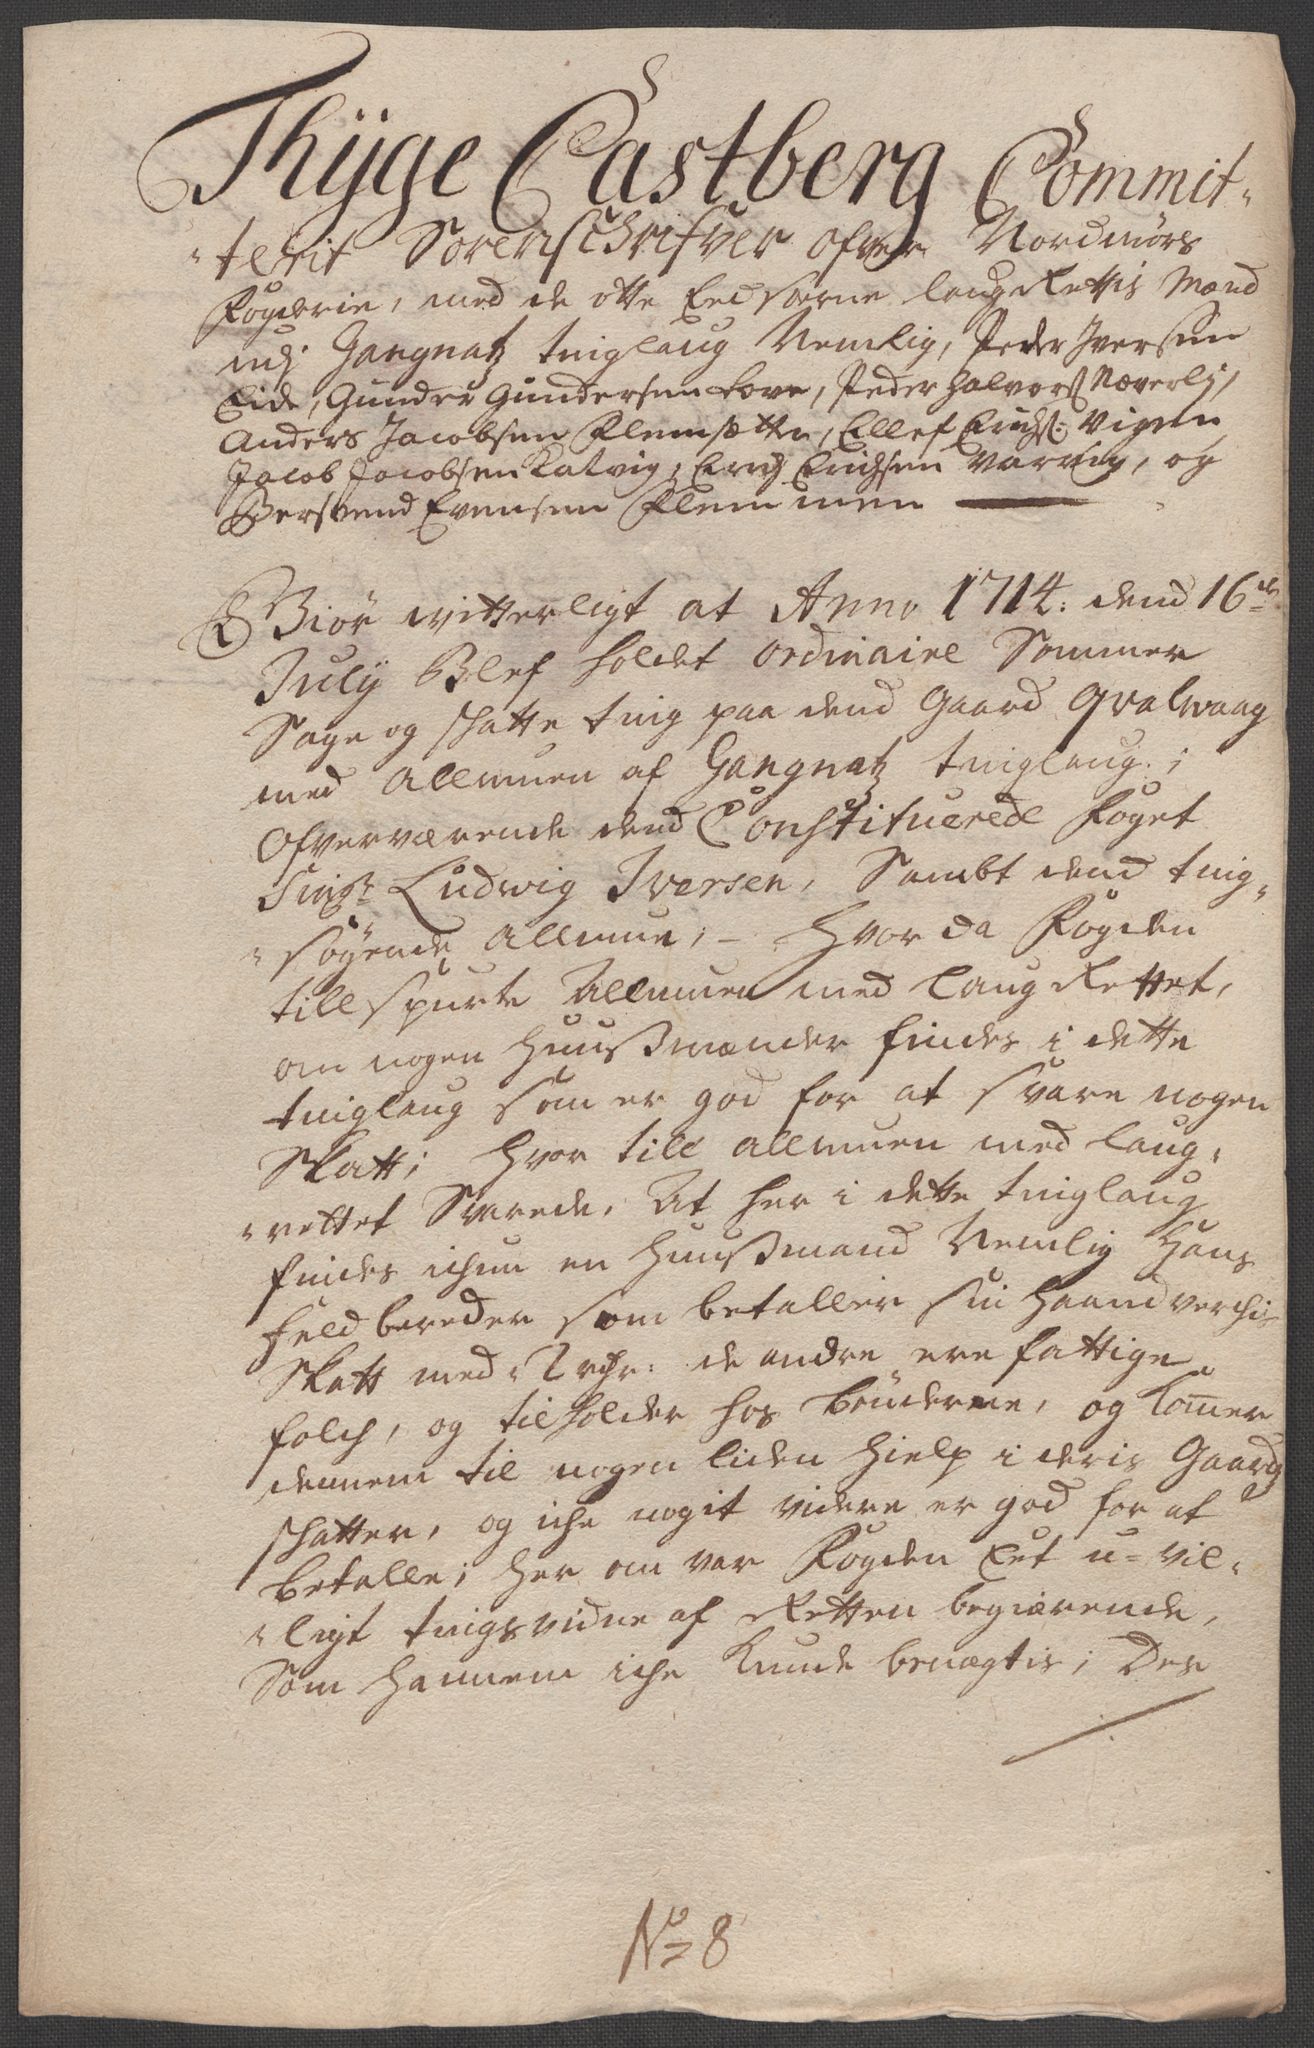 Thÿge Castberg Committerit
Sorenschrifver ofver Nordmørs
Fogderie, med de otte Eedsorne laugRettis Mænd
udj Gangnatz tinglaug Nemlig, Peder Iversen
Eide, Gunder Gundersen Love, Peder Halvorß Næverlj,
Anders Jacobsen Flemsætte, Ellef Erichß: Vigen
Jacob Jacobsen Kalvig, Erich Erichsen Varvig, og
Bersvend Evensen Flemmen
Giør witterligt at Anno 1714: dend 16de
Julÿ Blef holdet ordinaire Sommer
Sage og schatte ting paa dend Gaard Qvalwaag
med Allmuen af Gangnatz tinglaug;
Ofverværende dend Constituerede Foget
Sigr Ludwig Iversen, Sambt dend ting-
-søgende Allmue; - Hvor da Fogden
tillspurte Allmuen med LaugRettet,
om nogen Huußmænder findes i dette
tinglaug som er god for at svare nogen
Skatt; hvor till Allmuen med laug-
-rettet Svarede, At her i dette tinglaug
findes ichun en Huußmand Nemlig Hans
Feldbereder som betaller sin Haandverchs
Skatt med 2 rdr: de andre ere fattige
folch, og tilholder hos bønderne, og komer
dennem til nogen liden hielp i deris Gaards
schatter, og iche nogit videre er god for at
betalle; her om var Fogden Eet u-vil-
-ligt tingsvidne af Retten begiærende,
Som hannem iche kunde benægtis; Des
No 8